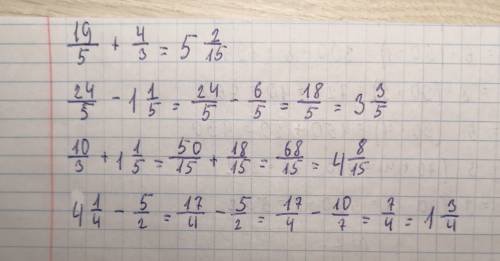 19/5 + 4/3 = 5 2/15
24/5 - 1 1/5 = 24/5 - 6/5 = 18/5 = 3 3/5
10/3 + 1 1/5 = 50/15 + 18/15 = 68/15 = 4 8/15
4 1/4 - 5/2 = 17/4 - 5/2 = 17/4 - 10/7 = 7/4 = 1 3/4